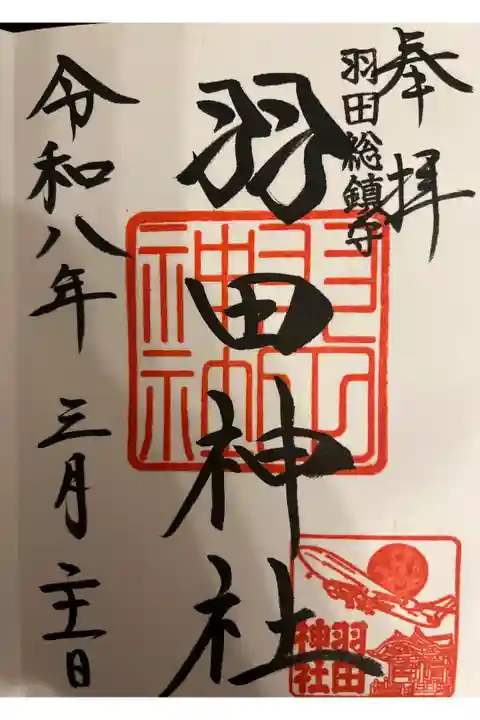 奉拝
羽田総鎮守
羽田神社
羽田
神社
羽田
神社
令和八年 三月 二十一日